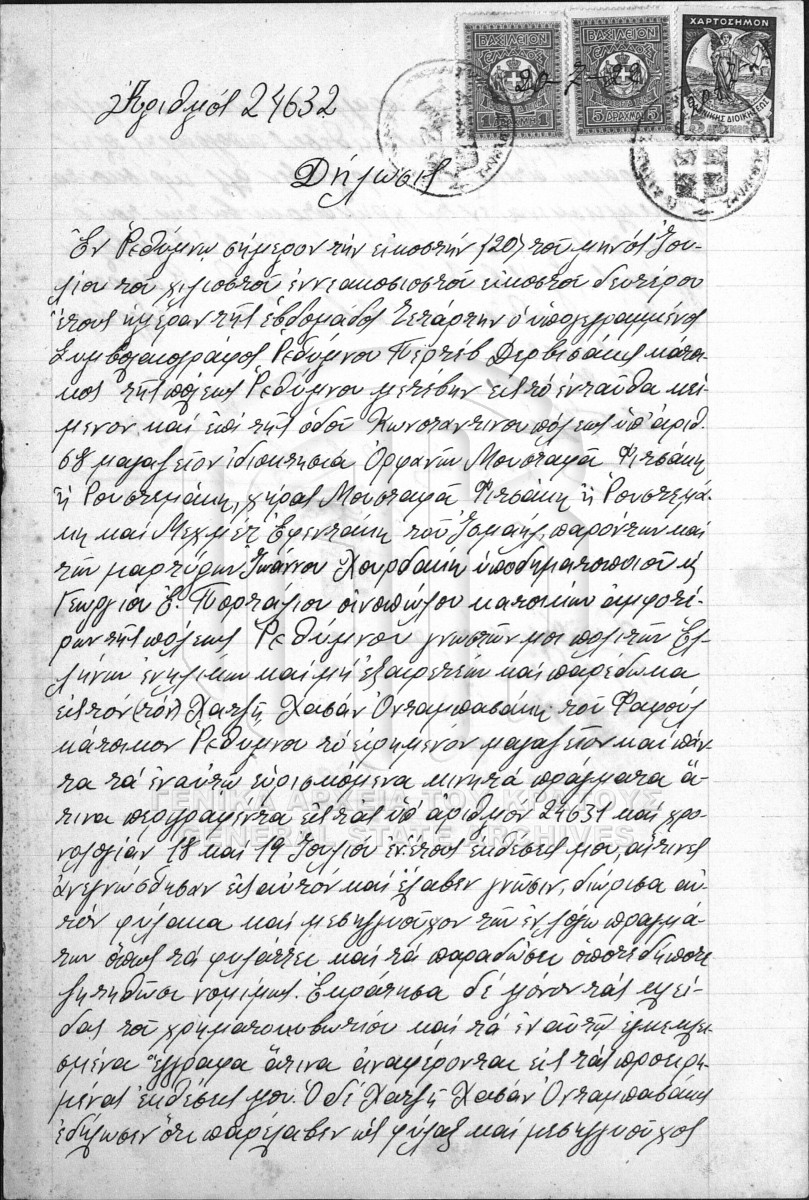 ΒΑΣΙΛΕΙΟΝ
ΕΛΛΑΔΟΣ
ΒΑΣΙΛΕΙΟΝ
ΕΛΛΑΔΟΣ
5 ΔΡΑΧΜΑΙ 5
ΧΑΡΤΟΣΗΜΟΝ
20-7-22
Ἀριθμός 24632
Δήλωσις
Ἐν Ρεθύμνῳ σήμερον τήν εἰκοστήν (20) τοῦ μηνός Ἰου-
λίου τοῦ χιλιοστοῦ ἐννεακοσιοστοῦ εἰκοστοῦ δευτέρου
ἔτους ἡμέραν τῆς ἑβδομάδος Τετάρτην ὁ ὑπογεγραμμένος
Συμβολαιογράφος Ρεθύμνου Περτέβ Δερβισάκης κάτοι-
κος τῆς πόλεως Ρεθύμνου μετέβην εἰς τό ἐνταῦθα κεί-
μενον καί ἐπί τῆς ὁδοῦ Κωνσταντινουπόλεως ὑπ' ἀριθ.
58 μαγαζεῖον ἰδιοκτησία Ὀρφανῶν Μουσταφᾶ Φιτσάκη
ἤ Ρουστεμάκη, χήρας Μουσταφᾶ Φιτσάκη ἤ Ρουστεμά-
κη καί Μεχμέτ Ἐφεντάκη τοῦ Ἰσμαήλ, παρόντων καί
τῶν μαρτύρων Ἰωάννου Χουρδάκη ὑποδηματοποιοῦ κ
Γεωργίου Ἐ. Πορτάλιου οἰνοπώλου κατοίκων ἀμφοτέ-
ρων τῆς πόλεως Ρεθύμνου γνωστῶν μοι πολιτῶν Ἑλ-
λήνων ἐνηλίκων καί μή ἐξαιρετέων καί παρέδωκα
εἰς τόν (τόν) Χατζῆ Χασάν Ὀνταμπασάκη τοῦ
κάτοικον Ρεθύμνου τό εἰρημένον μαγαζεῖον καί πάν-
τα τά ἐν αὐτῷ εὑρισκόμενα κινητά πράγματα ἅ-
τινα περιγράφονται εἰς τάς ὑπ' ἀριθμόν 24631 καί χρο-
νολογίαν 18 καί 19 Ἰουλίου ἐν. ἔτους ἐκθέσεις μου, αἵτινες
ἀνεγνώσθησαν εἰς αὐτόν καί ἔλαβεν γνῶσιν, διώρισα αὐ-
τόν φύλακα καί μεσεγγυοῦχον τῶν ἐν λόγῳ πραγμά-
των ὅπως τά φυλάττει καί τά παραδώσει ὁποτεδήποτε
ζητηθῶσι νομίμως. Ἐκράτησα δέ μόνον τάς κλεῖ-
δας τοῦ χρηματοκιβωτίου καί τά ἐν αὐτῷ ἐγκεκλει-
σμένα ἔγγραφα ἅτινα ἀναφέρονται εἰς τάς προειρη-
μένας ἐκθέσεις μου. Ὁ δέ Χατζῆ Χασάν Ὀνταμπασάκης
ἐδήλωσεν ὅτι παρέλαβεν ὡς φύλαξ καί μεσεγγυοῦχος
ΓΕΝΙΚΑ ΑΡΧΕΙΑ ΤΟΥ ΚΡΑΤΟΥΣ
GENERAL STATE ARCHIVES